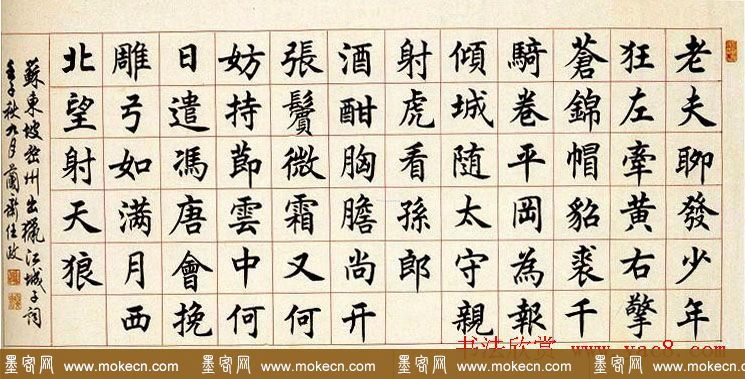 老夫聊發少年
狂左牽黃右擎
蒼錦帽貂裘千
騎卷平岡為報
傾城随太守親
射虎看孫郎
酒酣胸膽尚開
張鬢微霜又何
妨持節雲中何
日遣馮唐會挽
雕弓如满月西
北望射天狼
蘇東坡密州出獵江城子詞
壬子秋九月蘭齋任政
书法欣赏 www.yac8.com
墨客网 www.mokecn.com 墨客网 www.mokecn.com 墨客网 www.mokecn.com 墨客网 www.mokecn.com